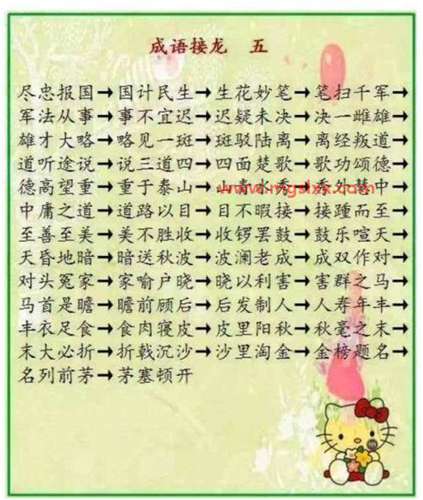 成语接龙 五
尽忠报国→国计民生→生花妙笔→笔扫千军→
军法从事→事不宜迟→迟疑未决→决一雌雄→
雄才大略→略见一斑→斑驳陆离→离经叛道→
道听途说→说三道四→四面楚歌→歌功颂德→
德高望重→重于泰山→秀外慧中→
中庸之道→道路以目→目不暇接→接踵而至→
至善至美→美不胜收→收锣罢鼓→鼓乐喧天→
天昏地暗→暗送秋波→波澜老成→成双作对→
对头冤家→家喻户晓→晓以利害→害群之马→
马首是瞻→瞻前顾后→后发制人→人寿年丰→
丰衣足食→食肉寝皮→皮里阳秋→秋毫之末→
末大必折→折戟沉沙→沙里淘金→金榜题名→
名列前茅→茅塞顿开